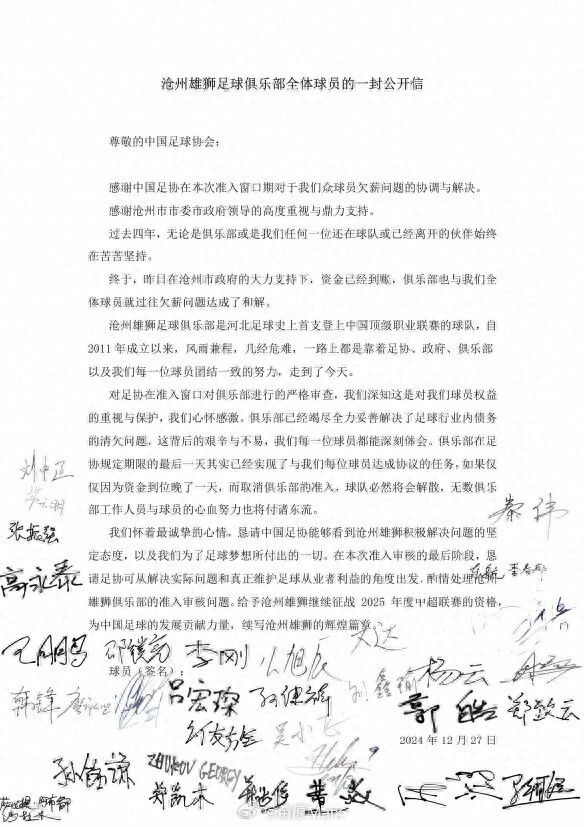 沧州雄狮足球俱乐部全体球员的一封公开信
尊敬的中国足球协会：
感谢中国足协在本次准入窗口期对于我们众球员欠薪问题的协调与解决。
感谢沧州市市委市政府领导的高度重视与鼎力支持。
过去四年，无论是俱乐部或是我们任何一位还在球队或已经离开的伙伴始终
在苦苦坚持。
终于，昨日在沧州市政府的大力支持下，资金已经到账，俱乐部也与我们全
体球员就过往欠薪问题达成了和解。
沧州雄狮足球俱乐部是河北足球史上首支登上中国顶级职业联赛的球队，自
2011年成立以来，风雨兼程，几经危难，一路上都是靠着足协、政府、俱乐部
以及我们每一位球员团结一致的努力，走到了今天。
对足协在准入窗口对俱乐部进行的严格审查，我们深知这是对我们球员权益
的重视与保护，我们心怀感激。俱乐部已经竭尽全力妥善解决了足球行业内债务
的清欠问题，这背后的艰辛与不易，我们每一位球员都能深刻体会。俱乐部在足
协规定期限的最后一天其实已经实现了与我们每位球员达成协议的任务，如果仅
仅因为资金到位晚了一天，而取消俱乐部的准入，球队必然将会解散，无数俱乐
部工作人员与球员的心血努力也将付诸东流。
我们怀着最诚挚的心情，恳请中国足协能够看到沧州雄狮积极解决问题的坚
定态度，以及我们为了足球梦想所付出的一切。在本次准入审核的最后阶段，恳
请足协可从解决实际问题和真正维护足球从业者利益的角度出发，酌情处理沧州
雄狮俱乐部的准入审核问题。给予沧州雄狮继续征战 2025 年度中超联赛的资格，
为中国足球的发展贡献力量，续写沧州雄狮的辉煌篇章。
球员（签名）：
张振强
高永泰
李刚
文达
杨云
吕宏琛
刘鑫瑜
郭皓
郑致云
吴小飞
2024 年 12 月 27 日
ZHUKOV GEORGY
郑凯木